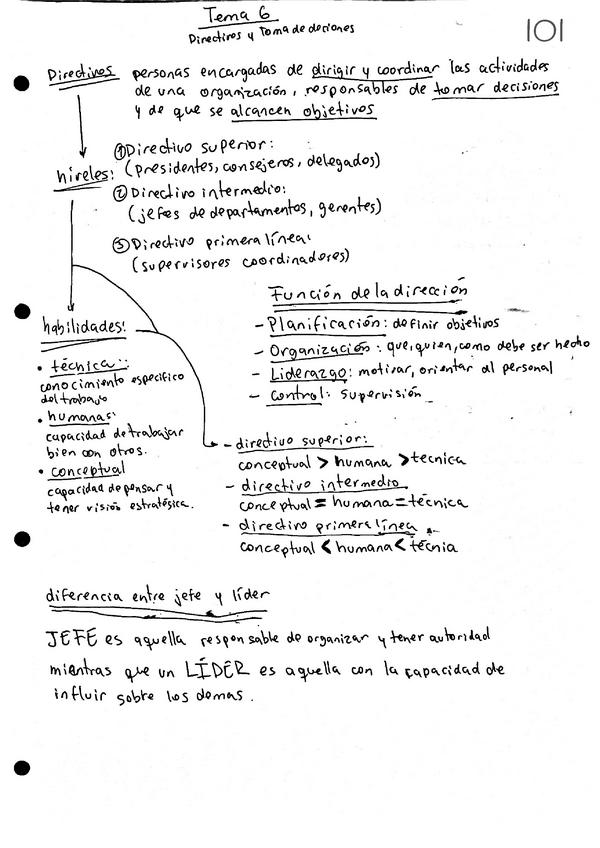 Tema 6
Directivos y toma de deciones
101
Directivos personas encargadas de dirigir y coordinar las actividades
de una organización, responsables de tomar decisiones
y de que se alcancen objetivos
niveles:
① Directivo superior:
(presidentes, consejeros, delegados)
② Directivo intermedio:
(jefes de departamentos, gerentes)
③ Directivo primera línea:
(supervisores coordinadores)
habilidades:
• técnica:
conocimiento específico
del trabajo
• humanas:
capacidad de trabajar
bien con otros.
• conceptual
capacidad de pensar y
tener visión estratégica.
Función de la dirección
- Planificación: definir objetivos
- Organización: que, quien, como debe ser hecho
- Liderazgo: motivar, orientar al personal
- control: supervisión
- directivo superior:
conceptual > humana > tecnica
- directivo intermedio
conceptual = humana = técnica
- directivo primera línea
conceptual < humana < técnia
diferencia entre jefe y líder
JEFE es aquella responsable de organizar y tener autoridad
mientras que un LÍDER es aquella con la capacidad de
influir sobre los demas.